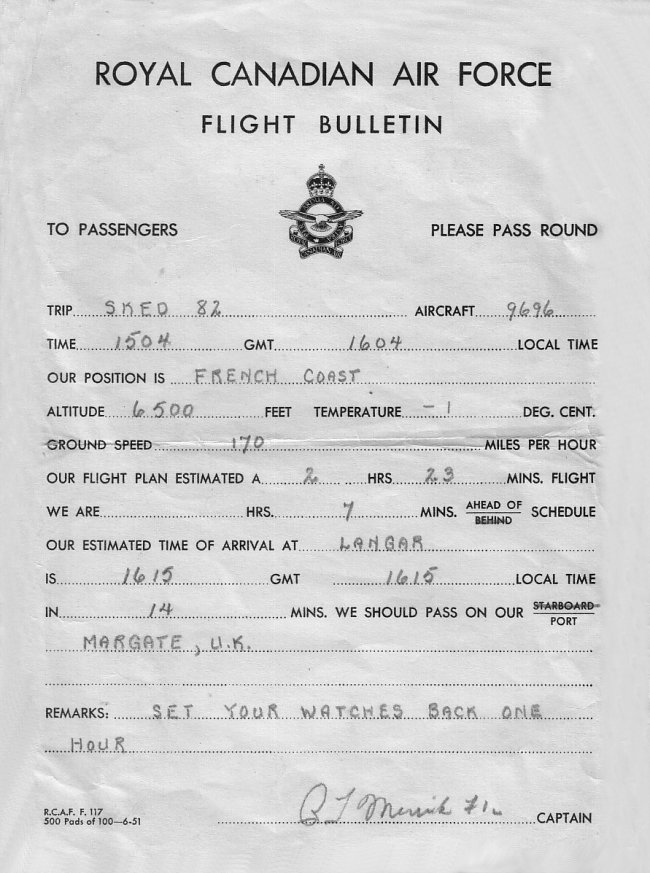 ROYAL CANADIAN AIR FORCE
FLIGHT BULLETIN
TO PASSENGERS PLEASE PASS ROUND
TRIP SKED 82 AIRCRAFT 9696
TIME 1504 GMT 1604 LOCAL TIME
OUR POSITION IS FRENCH COAST
ALTITUDE 6500 FEET TEMPERATURE -1 DEG. CENT.
GROUND SPEED 170 MILES PER HOUR
OUR FLIGHT PLAN ESTIMATED A 2 HRS 23 MINS. FLIGHT
WE ARE HRS. 7 MINS. AHEAD OF BEHIND SCHEDULE
OUR ESTIMATED TIME OF ARRIVAL AT LANGAR
IS 1615 GMT 1615 LOCAL TIME
IN 14 MINS. WE SHOULD PASS ON OUR STARBOARD PORT
MARGATE, U.K.
REMARKS: SET YOUR WATCHES BACK ONE
HOUR
CAPTAIN
R.C.A.F. F. 117
500 Pads of 100—6-51